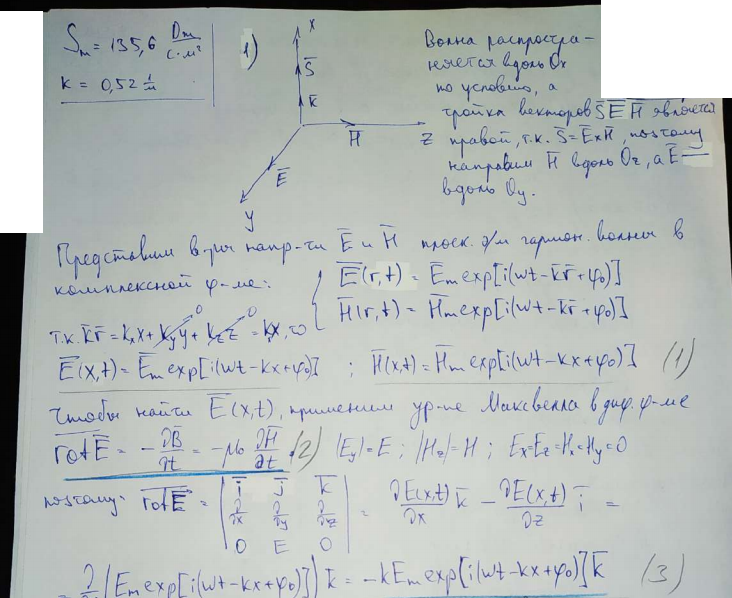 Sm = 135,6 Дж/с·м²
k = 0,52 1/м
1)
x
S̄
k̄
H̄
z
Ē
y
Волна распростра-
няется вдоль Ox
по условию, а
тройка векторов S̄ Ē H̄ является
правой, т.к. S̄ = Ē×H̄, поэтому
направим H̄ вдоль Oz, а Ē —
вдоль Oy.
Представим в-ры напр-ти Ē и H̄ плоск. э/м гармон. волны в
комплексной ф-ме: { Ē(r,t) = Ēm exp[i(ωt - k̄r̄ + φ0)]
H̄(r,t) = H̄m exp[i(ωt - k̄r̄ + φ0)]
т.к. k̄r̄ = kxx + kyy + kzz = kx, то
0 0
Ē(x,t) = Ēm exp[i(ωt - kx + φ0)] ; H̄(x,t) = H̄m exp[i(ωt - kx + φ0)] (1)
Чтобы найти Ē(x,t), применим ур-ие Максвелла в диф. ф-ме
rot Ē = - ∂B̄/∂t = - μ0 ∂H̄/∂t (2) |Ey| = E ; |Hz| = H ; Ex = Ez = Hx = Hy = 0
поэтому: rot Ē = | ī j̄ k̄ ; ∂/∂x ∂/∂y ∂/∂z ; 0 E 0 | = ∂E(x,t)/∂x k̄ - ∂E(x,t)/∂z ī =
(Em exp[i(ωt - kx + φ0)]) k̄ = -kEm exp[i(ωt - kx + φ0)] k̄ (3)